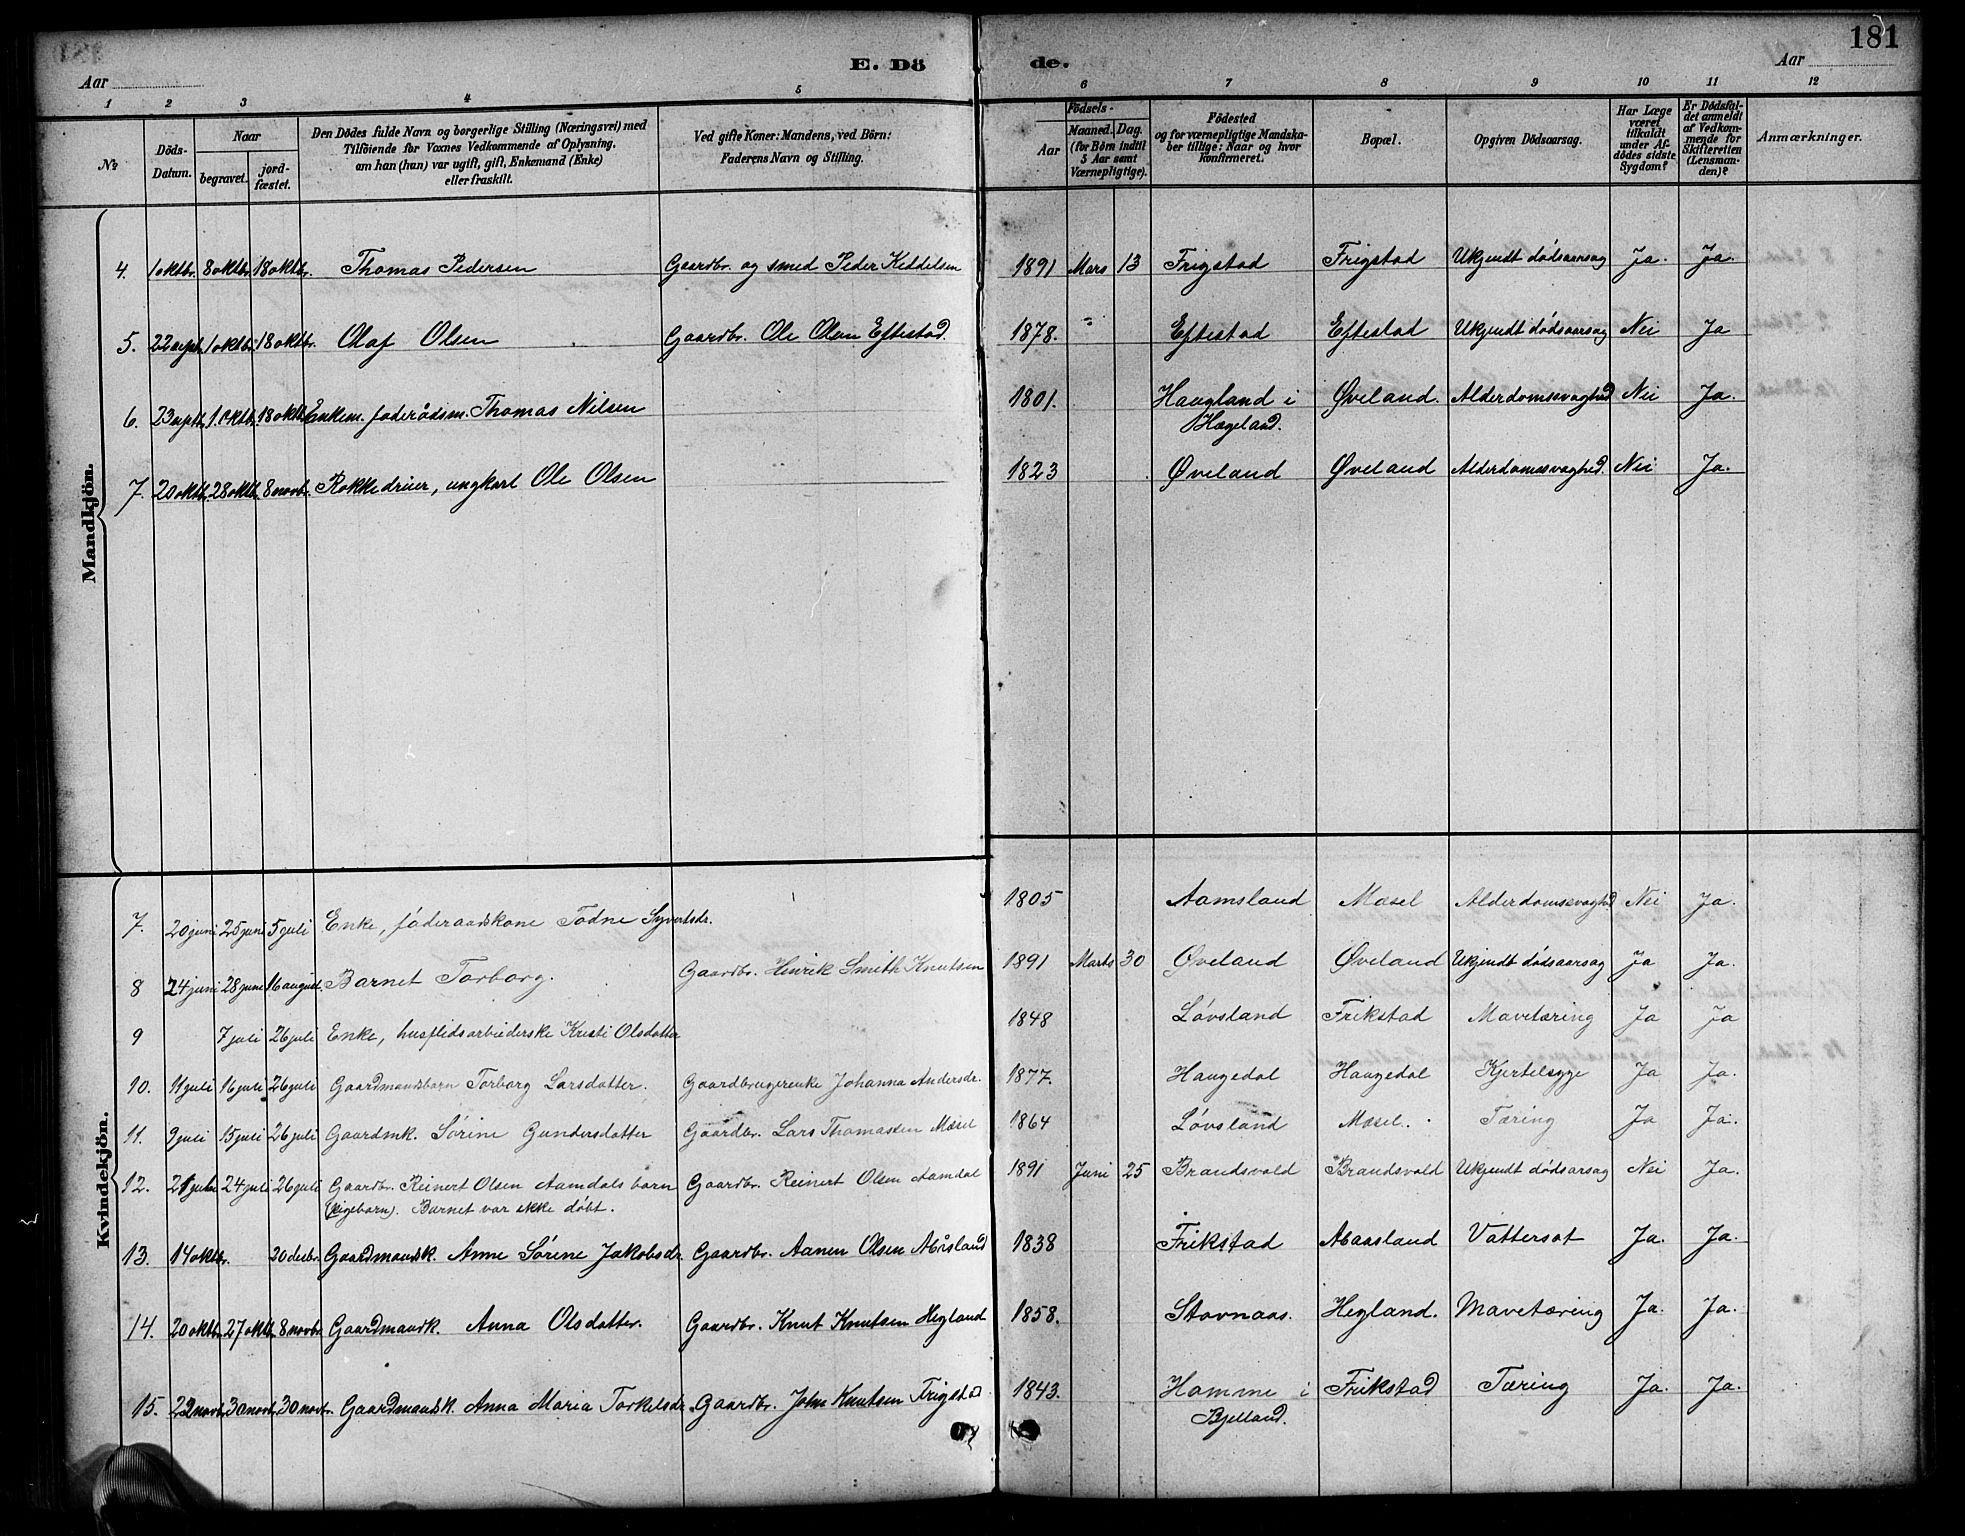 181
E. Dö de.
Aar Aar
1 2 3 4 5 6 7 8 9 10 11 12
No
Döds-Datum.
Naar
begravet.
jord-fæstet.
Den Dödes fulde Navn og borgerlige Stilling (Næringsvei) med
Tilföiende for Voxnes Vedkommende af Oplysning,
om han (hun) var ugift, gift, Enkemand (Enke)
eller fraskilt.
Ved gifte Koner: Mandens, ved Börn:
Faderens Navn og Stilling.
Födsels-
Aar
Maaned. Dag.
(for Börn indtil
5 Aar samt
Værnepligtige).
Födested
og for værnepligtige Mandska-
ber tillige: Naar og hvor
konfirmeret.
Bopæl.
Opgiven Dödsaarsag.
Har Læge
været
tilkaldt
under Af-
dödes sidste
Sygdom?
Er Dödsfal-
det anmeldt
af Vedkom-
mende for
Skifteretten
(Lensman-
den)?
Anmærkninger.
Mandkjön.
4. 1 oktbr. 8 oktbr. 18 oktbr. Thomas Pedersen Gaardbr. og smed Peder Keddelsen 1891 Mars 13 Frigstad Frigstad Ukjendt dödsaarsag Ja. Ja.
5. 22 sept. 1 oktbr. 18 oktbr. Olaf Olsen Gaardbr. Ole Olsen Eftestad. 1878. Eftestad Eftestad Ukjendt dödsaarsag Nei Ja
6. 23 sptb. 1. oktb. 18 oktb. Enkem. föderådsm. Thomas Nilsen 1801. Haugland i Øveland. Alderdomssvaghed Nei Ja.
Hægeland.
7. 20 oktb. 28 oktb. 8 novb. Rokkedreier, ungkarl Ole Olsen 1823 Øveland Øveland Alderdomssvaghed. Nei Ja.
Kvindekjön.
7. 20 juni 25 juni 5 juli Enke, föderaadskone Todne Syvertsdr. 1805 Aamsland Mæsel Alderdomssvaghed Nei Ja.
8 24 juni 28 juni 16 august. Barnet Torborg. Gaardbr. Hinrik Smith Knutsen 1891 Marts 30 Øveland Øveland Ukjendt dödsaarsag Ja Ja.
9 7 juli 26 juli Enke, husflidsarbeiderske Kristi Olsdatter 1848 Løvsland Frikstad Mavetæring Ja Ja
10. 11 juli 16 juli 26 juli Gaardmandsbarn Torborg Larsdatter. Gaardbrugerenke Johanna Andersdr. 1877. Haugedal Haugedal Kjertelsyge Ja Ja.
11. 9 juli 15 juli 26 juli Gaardmk. Sørine Gundersdatter Gaardbr. Lars Thomassen Mæsel 1864 Løvsland Mæsel. Tæring Ja Ja.
12. 21 juli 24 juli 26 juli Gaardbr. Reinert Olsen Aamdals barn Gaardbr. Reinert Olsen Aamdal 1891 Juni 25 Brandsvold Brandsvold Ukjendt dødsarsag Nei Ja.
(Pigebarn). Barnet var ikke døbt.
13. 14 oktbr. 20 decbr. Gaardmandsk. Anne Sørine Jakobsdr. Gaardbr. Aanen Olsen 1838 Frikstad Vattersot Ja. Ja.
14. 20 oktbr. 27 oktb. 8 novbr. Gaardmandk. Anna Olsdatter. Gaardbr. Knut Knutsen Hegland 1858. Stavnaas. Hegland. Mavetæring Ja. Ja.
15. 22 novb. 30 novb. 30 novb. Gaardmandsk. Anna Maria Torkelsdr. Gaardbr. John Knutsen Frigstad 1843. Homme i Frikstad Tæring Ja. Ja.
Bjelland.